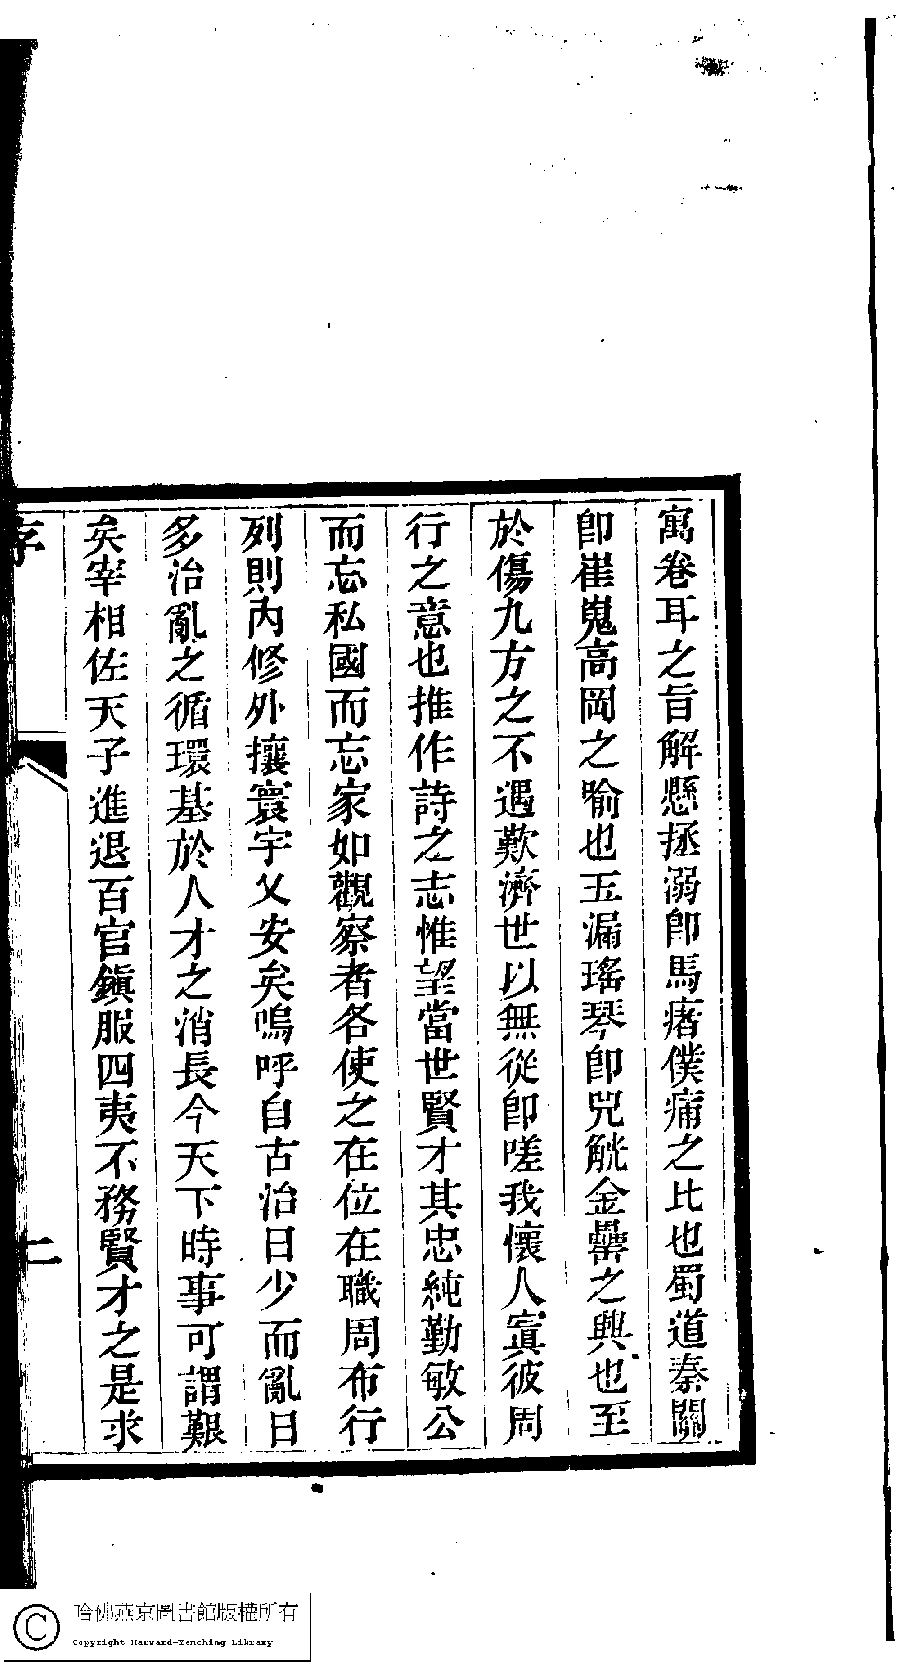 寓卷耳之旨解懸拯溺卽馬瘏僕痡之比也蜀道秦關
卽崔嵬高岡之喻也玉漏瑤琴卽兕觥金罍之興也至
於傷九方之不遇歎濟世以無從卽嗟我懷人寘彼周
行之意也推作詩之志惟望當世賢才其忠純勤敏公
而忘私國而忘家如觀察者各使之在位在職周布行
列則內修外攘寰宇乂安矣嗚呼自古治日少而亂日
多治亂之循環基於人才之消長今天下時事可謂艱
矣宰相佐天子進退百官鎭服四夷不務賢才之是求
序
二
哈佛燕京圖書館版權所有
Copyright Harvard-Yenching Library